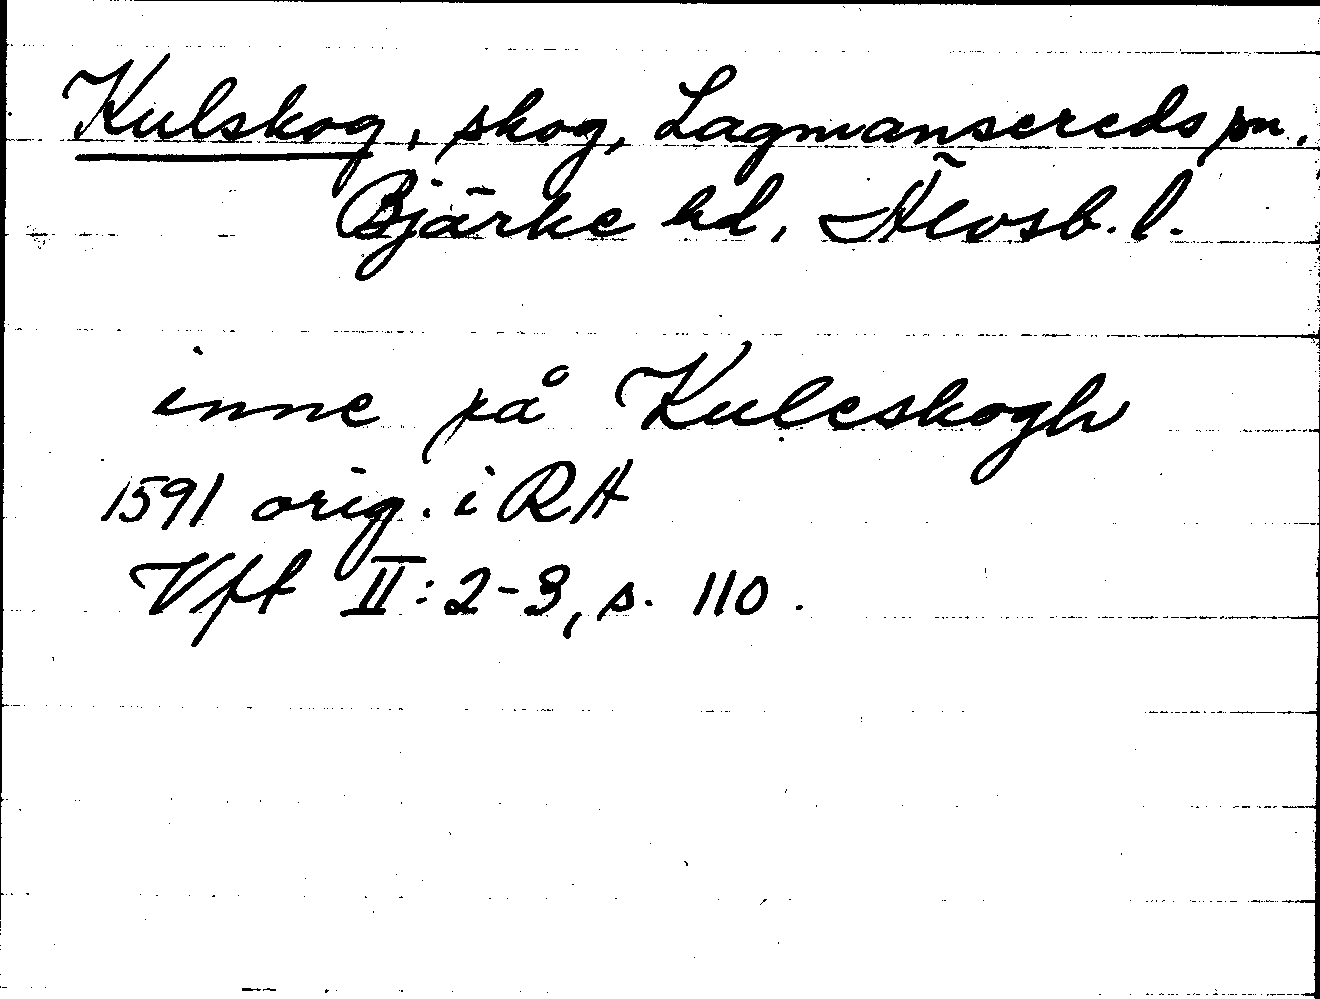 Kulskog, skog, Lagmansereds sn.
Bjärke hd, Älvsb. l.
inne på Kuleskogh
1591 orig. i RA
Vft II: 2-3, s. 110.